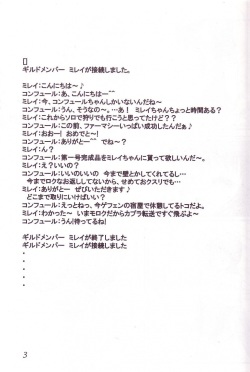 []
ギルドメンバー ミレイが接続しました。
ミレイ：こんにちは～♪
コンフュール：あ、こんにちはー^^
ミレイ：今、コンフュールちゃんしかいないんだね～
コンフュール：うん、そうなの～。…あ！ ミレイちゃんちょっと時間ある？
ミレイ：これからソロで狩りでも行こうと思ってたけど？？
コンフュール：この前、ファーマシーいっぱい成功したんだぁ♪
ミレイ：おおー| おめでとー|
コンフュール：ありがとー^^ でね～？
ミレイ：ん？
コンフュール：第一号完成品をミレイちゃんに貰って欲しいんだ～。
ミレイ：え？いいの？
コンフュール：いいのいいの 今まで壁とかしてくれてるし…
今までロクなお返ししてないから、せめておクスリでも…
ミレイ：ありがとー ぜひいただきます♪
どこまで取りにいけばいい？
コンフュール：えっとねっ、今ゲフェンの宿屋で休憩してるトコだよ。
ミレイ：わかった～ いまモロクだからカプラ転送ですぐ飛ぶよ～
コンフュール：うん|待ってるね|
ギルドメンバー ミレイが終了しました
ギルドメンバー ミレイが接続しました
・
・
・
・
3